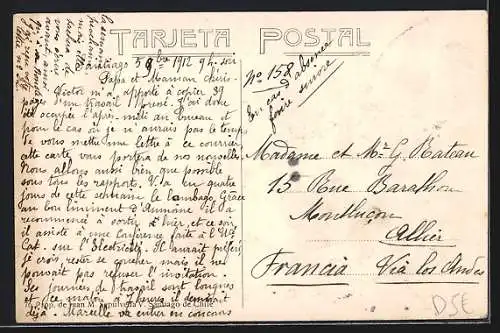 TARJETA POSTAL
Santiago 5 9bre 1912 9h. soir
Papa et Maman chéris.
Victor m'a apporté à copier 39
pages d'un travail pressé. J'ai donc
été occupée l'après-midi au bureau et
pour le cas où je n'aurais pas le temps
de vous mettre une lettre à ce courrier
cette carte vous portera de nos nouvelles
Nous allons aussi bien que possible
sous tous les rapports. V. a eu quatre
jours de cette semaine le lumbago. Grâce
au bon liniment d'Aumoine il a
recommencé à sortir d'hier et ce soir
il assiste à une Conférence faite à l'U.
Cat. sur l'Electricité. Il aurait préféré,
je crois, rester se coucher mais il ne
pouvait pas refuser l'invitation.
Ses journées de travail sont longues
et ce matin à 7 heures il devait être
déjà. Marcelle va entrer en concours
Prop. de Juan M. Sepúlveda V. Santiago de Chile
No 158
En cas d'absence
faire suivre
Madame et Mr G. Rateau
15 Rue Barathon
Montluçon
Allier
Francia Via los Andes
D5E